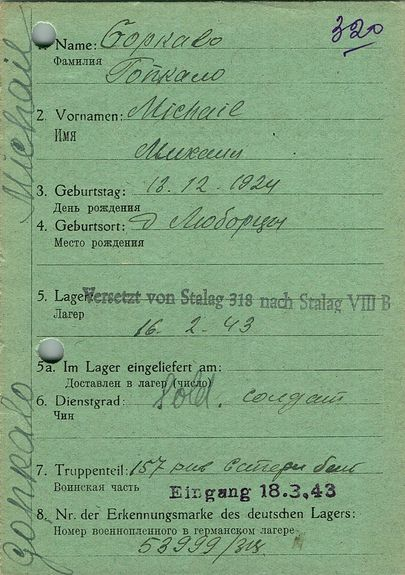 320
Name: Gorkalo
Фамилия
Гопкало
2. Vornamen: Michail
Имя
Михаил
3. Geburtstag: 13. 12. 1924
День рождения
4. Geburtsort: д
Место рождения
5. Lager: Versetzt von Stalag 318 nach Stalag VIII B
Лагер
16. 2. 43
5a. Im Lager eingeliefert am:
Доставлен в лагер (число)
6. Dienstgrad: Sold. солдат
Чин
7. Truppenteil: 157
Воинская часть
Eingang 18.3.43
8. Nr. der Erkennungsmarke des deutschen Lagers:
Номер военнопленного в германском лагере
53999/318
Michail